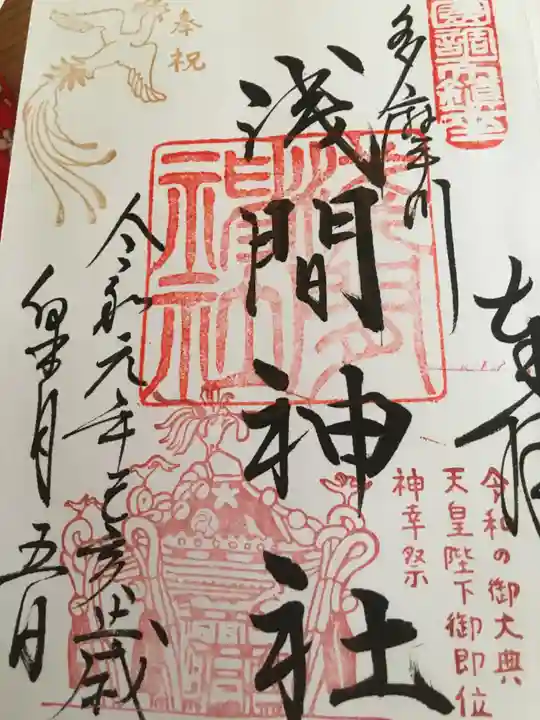 奉拝
多摩川
浅間神社
令和元年己亥歳
皐月五日
奉祝
令和の御大典
天皇陛下御即位
神幸祭
浅間神社